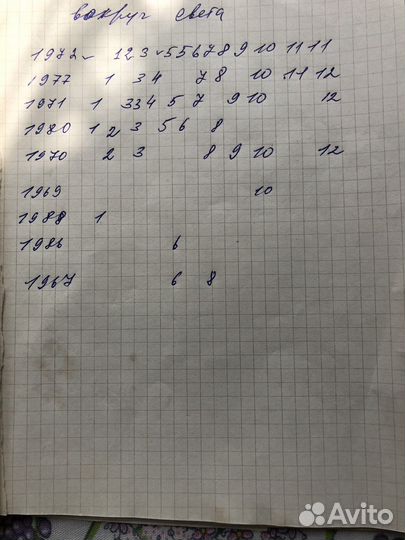 вокруг света
1972 ~ 1 2 3 ~ 5 5 6 7 8 9 10 11 11
1977 1 3 4 7 8 10 11 12
1971 1 3 3 4 5 7 9 10 12
1980 1 2 3 5 6 8
1970 2 3 8 9 10 12
1969 10
1988 1
1986 6
1967 6 8
Avito